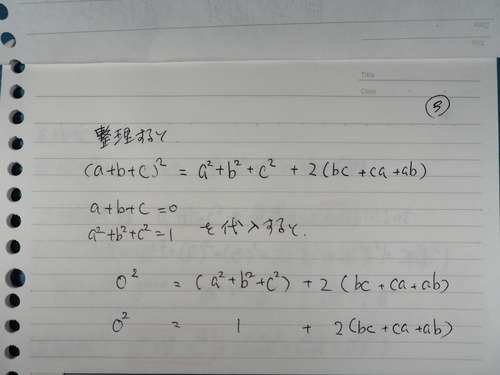 Title
Date
③
整理すると
(a+b+c)² = a²+b²+c² + 2(bc+ca+ab)
a+b+c=0
a²+b²+c²=1 を代入すると、
0² = (a²+b²+c²) + 2(bc+ca+ab)
0² = 1 + 2(bc+ca+ab)